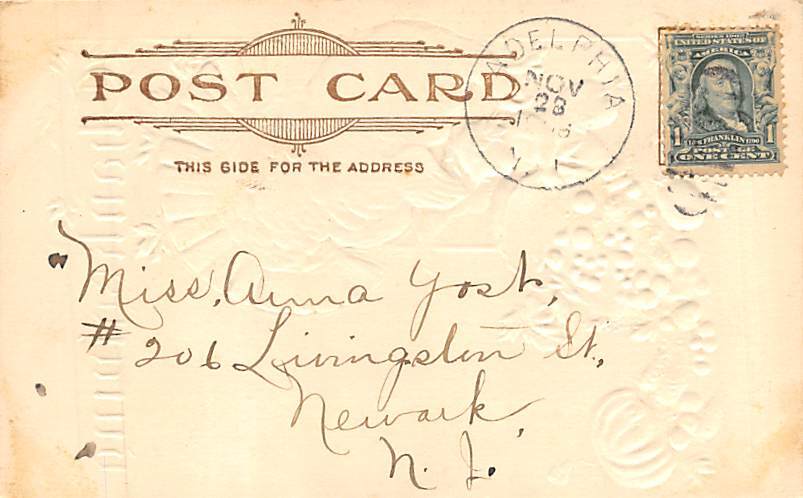 POST CARD
THIS SIDE FOR THE ADDRESS
ADELPHIA
NOV
28
SERIES 1902
UNITED STATES OF
AMERICA
FRANKLIN 1790
1 POSTAGE 1
ONE CENT
"Miss, Anna Yost,
# 206 Livingston St.,
Newark,
N. J.